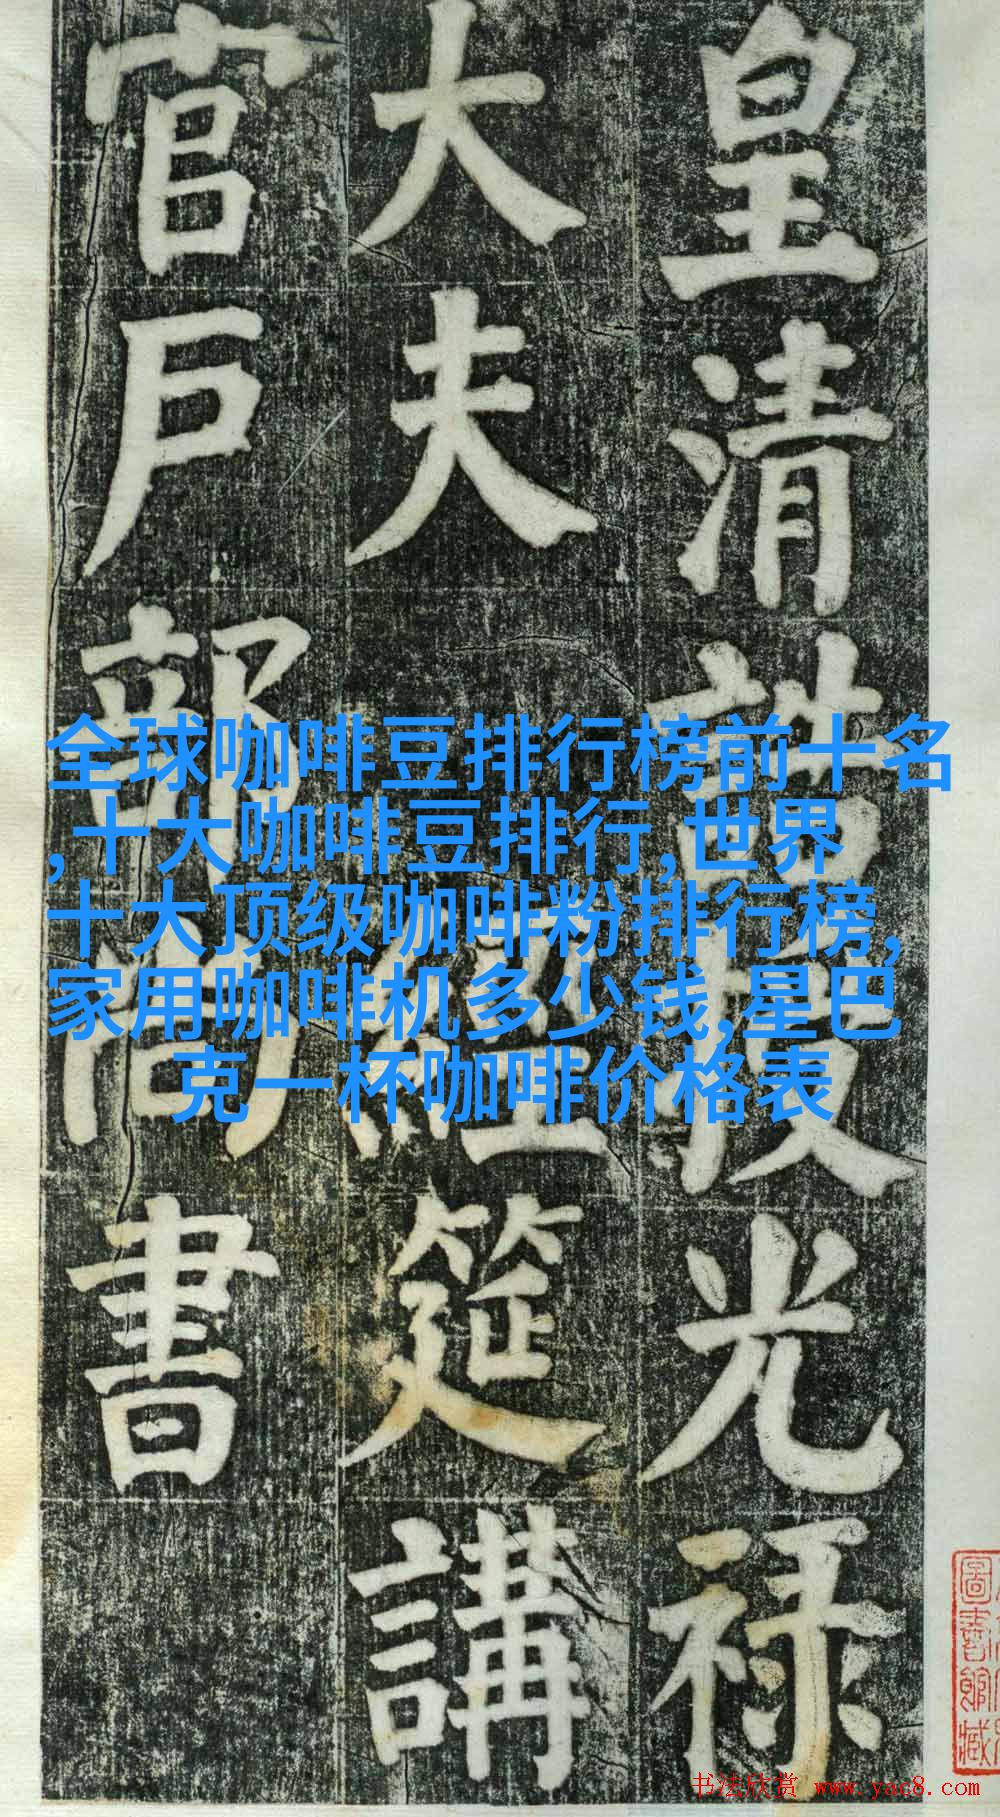 皇清誥授光禄
大夫經筵講
官戶部尚書
全球咖啡豆排行榜前十名
,十大咖啡豆排行,世界
十大顶级咖啡粉排行榜,
家用咖啡机多少钱,星巴
克一杯咖啡价格表
圖書館藏
书法欣赏 www.yac8.com